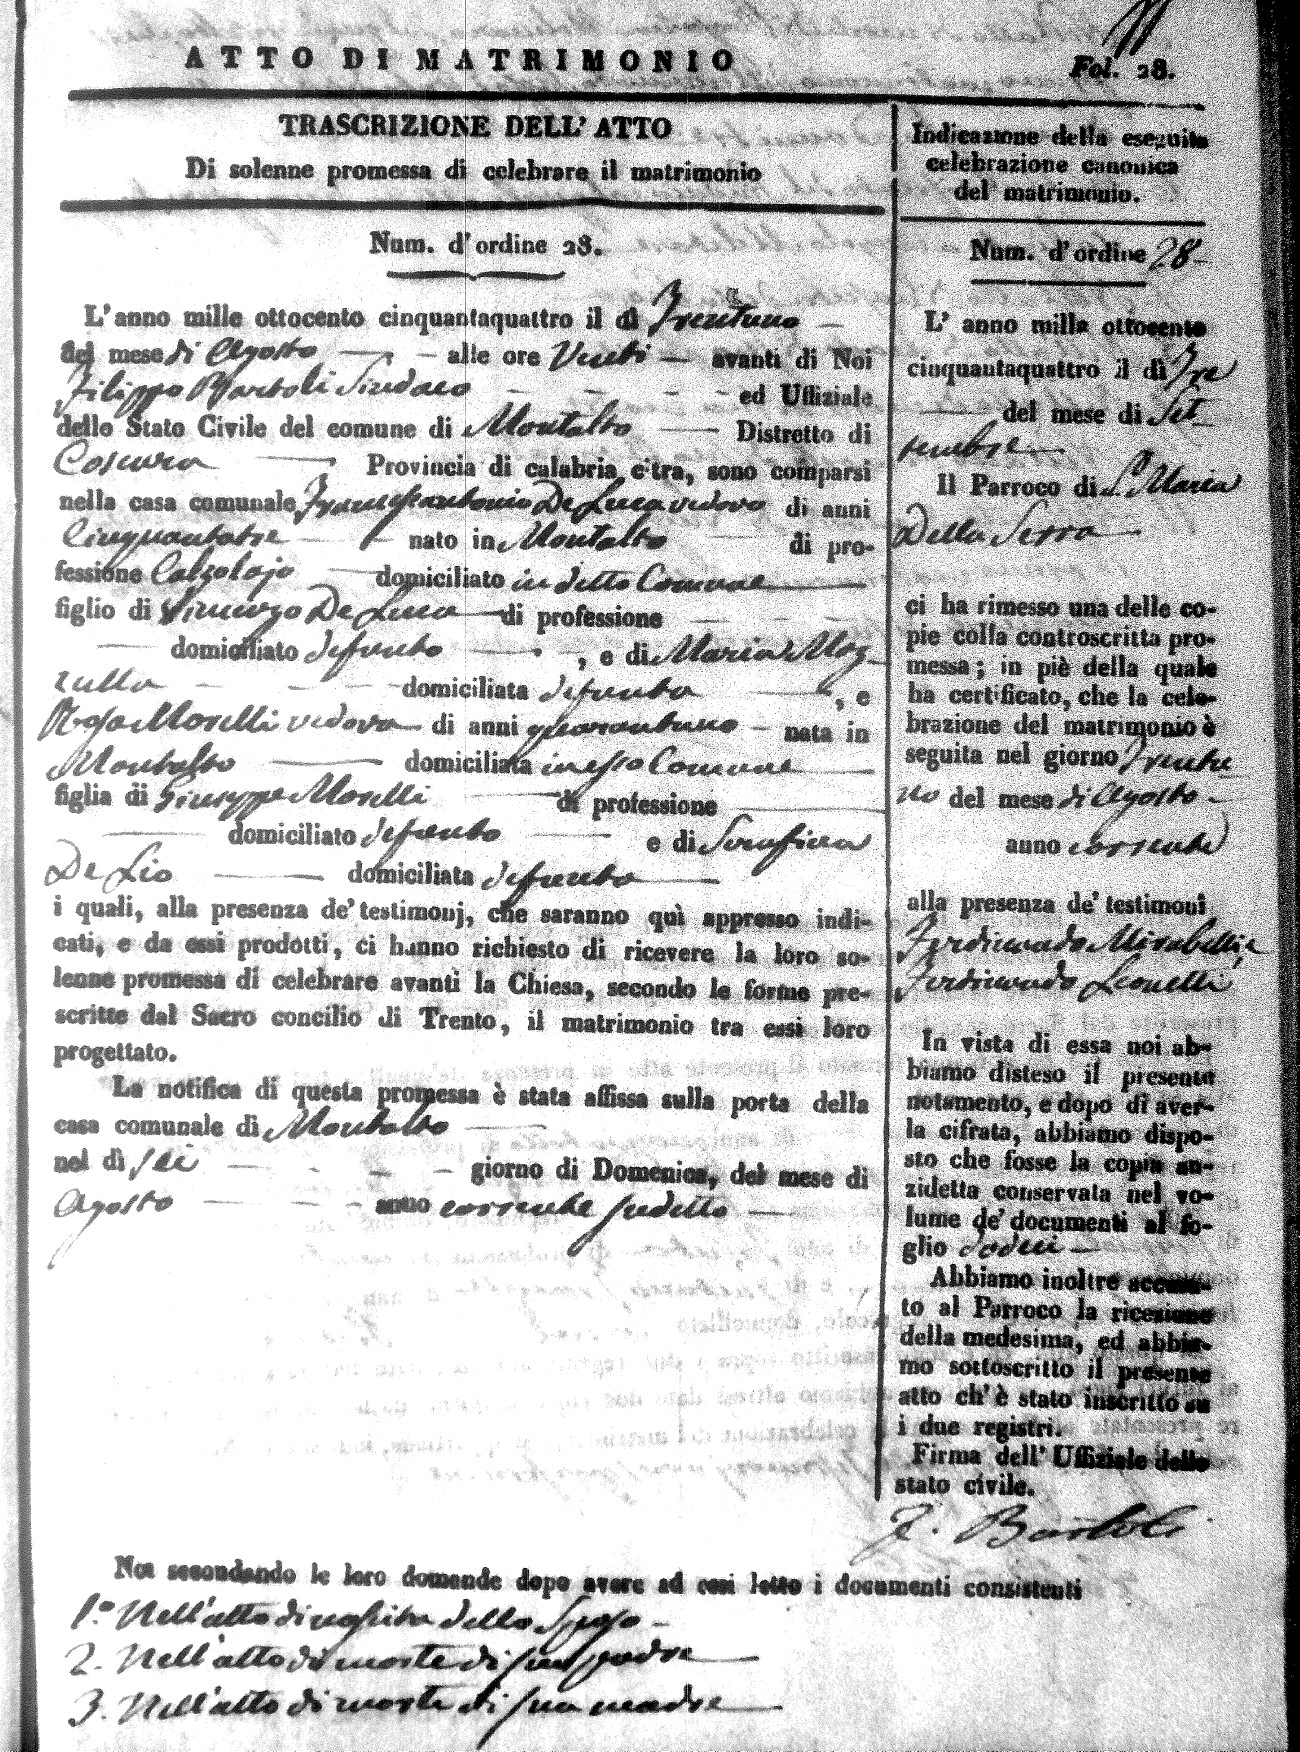 ATTO DI MATRIMONIO
Fol. 28.
TRASCRIZIONE DELL' ATTO
Di solenne promessa di celebrare il matrimonio
Num. d'ordine 28.
L'anno mille ottocento cinquantaquattro il dì Trentuno
del mese di Agosto alle ore Venti avanti di Noi
Filippo Bartoli Sindaco ed Uffiziale
dello Stato Civile del comune di Montalto Distretto di
Cosenza Provincia di calabria citra, sono comparsi
nella casa comunale Francescantonio De Luca vedovo di anni
Cinquantatre nato in Montalto di pro-
fessione Calzolajo domiciliato in detto Comune
figlio di Vincenzo De Luca di professione
domiciliato defunto , e di Maria Moz
zullo domiciliata defunta , e
Rosa Morelli vedova di anni quarantuno nata in
Montalto domiciliata in esso Comune
figlia di Giuseppe Morelli di professione
domiciliato defunto e di Serafina
De Lio domiciliata defunta
i quali, alla presenza de' testimonj, che saranno quì appresso indi-
cati, e da essi prodotti, ci hanno richiesto di ricevere la loro so-
lenne promessa di celebrare avanti la Chiesa, secondo le forme pre-
scritte dal Sacro concilio di Trento, il matrimonio tra essi loro
progettato.
La notifica di questa promessa è stata affissa sulla porta della
casa comunale di Montalto
nel dì sei giorno di Domenica, del mese di
Agosto anno corrente sudetto
Indicazione della eseguita
celebrazione canonica
del matrimonio.
Num. d'ordine 28
L' anno mille ottocento
cinquantaquattro il dì Tre
del mese di Set
tembre
Il Parroco di S. Maria
Della Serra
ci ha rimesso una delle co-
pie colla controscritta pro-
messa; in piè della quale
ha certificato, che la cele-
brazione del matrimonio è
seguita nel giorno Trentu
no del mese di Agosto
anno corrente
alla presenza de' testimoni
Ferdinando Mirabelli, e
Ferdinando Leonetti
In vista di essa noi ab-
biamo disteso il presente
notamento, e dopo di aver-
la cifrata, abbiamo dispo-
sto che fosse la copia an-
zidetta conservata nel vo-
lume de' documenti al fo-
glio dodici
Abbiamo inoltre accusa-
to al Parroco la ricezione
della medesima, ed abbia-
mo sottoscritto il presente
atto ch' è stato inscritto su
i due registri.
Firma dell' Uffiziale dello
stato civile.
F. Bartoli
Noi secondando le loro domande dopo avere ad essi letto i documenti consistenti
1.º Nell'atto di nascita dello Sposo
2. Nell'atto di morte di suo padre
3. Nell'atto di morte di sua madre